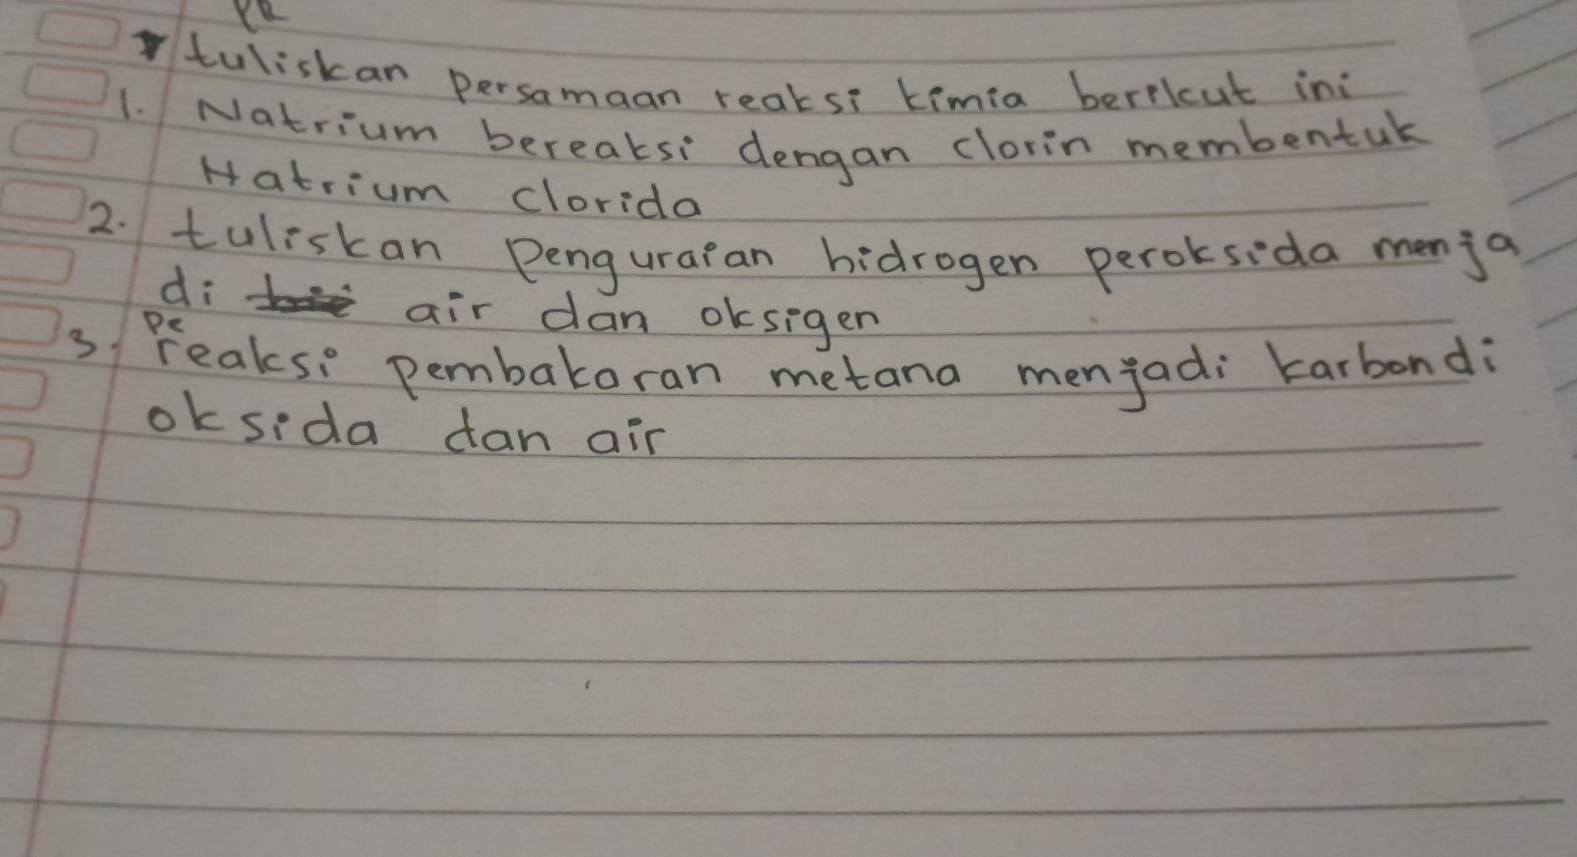 PR
tuliskan persamaan reaksi kimia berikut ini
1. Natrium bereaksi dengan clorin membentuk
Hatrium clorida
2. tuliskan penguraian hidrogen peroksida menja
di air dan oksigen
Pe
3. reaksi pembakaran metana menjadi karbondi
oksida dan air